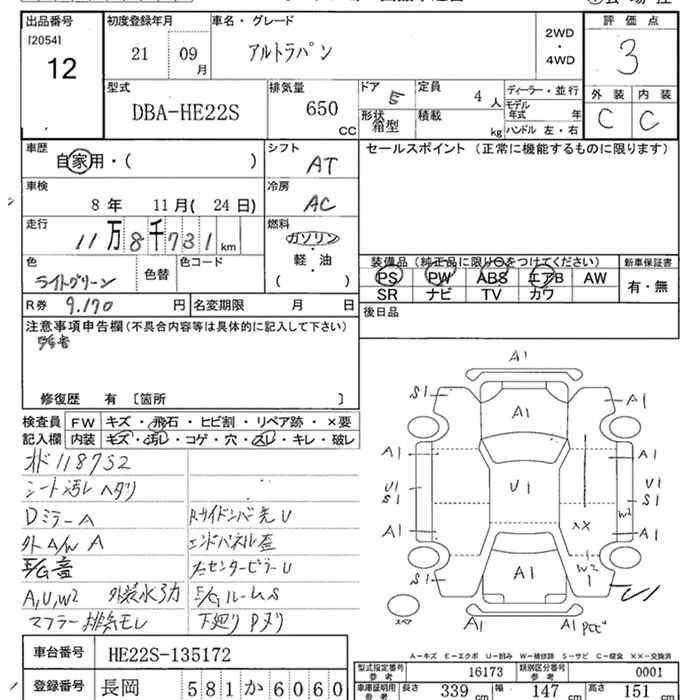 出品番号
[2054]
12
初度登録年月
21 09月
車名・グレード
アルトラパン
2WD
・
4WD
評価点
3
外装 内装
C C
型式
DBA-HE22S
排気量
650
CC
ドア
5
定員
4人
形状
箱型
積載
kg
ディーラー・並行
モデル
年式 年
ハンドル 左・右
車歴
自家用・( )
シフト
AT
車検
8年 11月( 24日)
冷房
AC
走行
11万8千731km
燃料
ガソリン
軽・油
( )
色
ライトグリーン
色替
色コード
R券 9.170 円
名変期限 月 日
セールスポイント (正常に機能するものに限ります)
装備品 (純正品に限り○をつけてください)
PS PW ABS エアB AW
SR ナビ TV カワ
新車保証書
有・無
後日品
注意事項申告欄(不具合内容等は具体的に記入して下さい)
修復歴 有 〔箇所 〕
検査員
記入欄
FW キズ・飛石・ヒビ割・リペア跡・×要
内装 キズ・汚れ・コゲ・穴・スレ・キレ・破レ
118752
シート汚レ ヘタリ
Dミラー A
外 A/W A
E/G音
A,U,W2
マフラー排気モレ
エンドパネル歪
センターピラーU
E/Gルーム S
下廻り Pヌリ
A1
S1
A1
A1
A1
A1
U1
S1
U1
U1
S1
W2
××
A1
A1
S1
A1
W2
1
A1
A1
スペア
A-キズ E-エクボ U-凹み W-補修跡 S-サビ C-腐食 ××-交換済
車台番号
HE22S-135172
登録番号
長岡 581 か 6060
型式指定番号
参考
16173
類別区分番号
参考
0001
車庫証明用
参考
長さ 339cm
幅 147cm
高さ 151cm